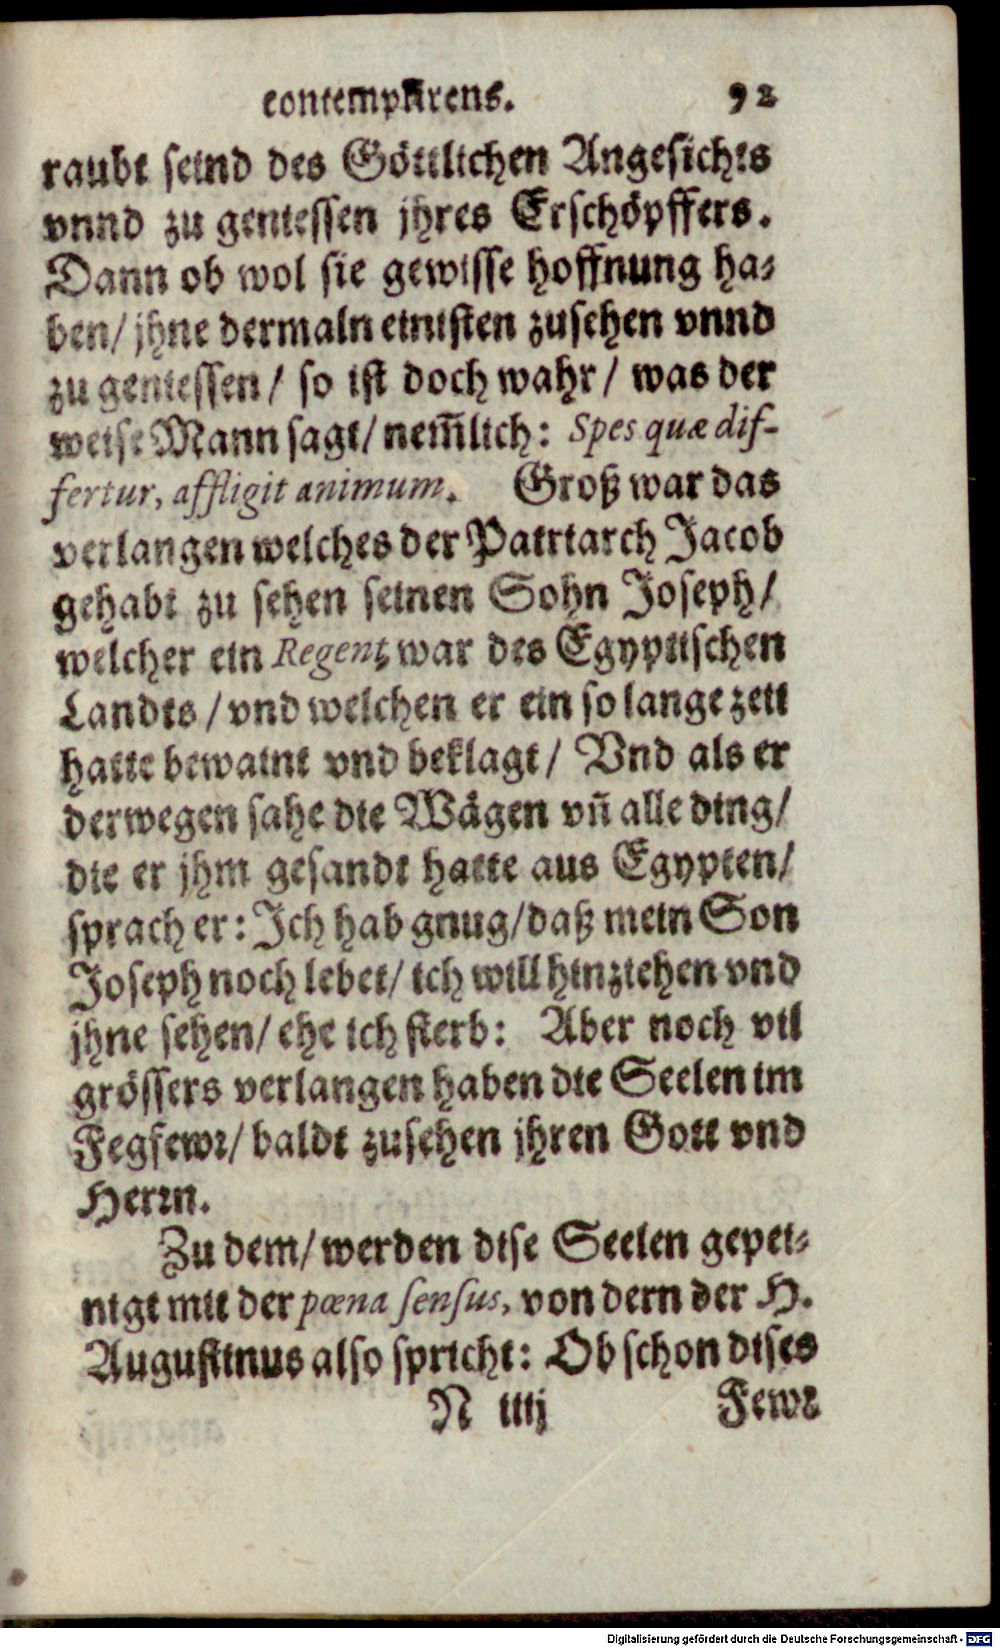 contemplirens. 92
raubt seind des Göttlichen Angesichts
vnnd zu geniessen jhres Erschöpffers.
Dann ob wol sie gewisse hoffnung ha-
ben/ jhne dermaln einisten zusehen vnnd
zu geniessen / so ist doch wahr / was der
weise Mann sagt/ nem̃lich: Spes quæ dif-
fertur, affligit animum. Groß war das
verlangen welches der Patriarch Jacob
gehabt zu sehen seinen Sohn Joseph/
welcher ein Regent, war des Egyptischen
Landts / vnd welchen er ein so lange zeit
hatte bewaint vnd beklagt / Vnd als er
derwegen sahe die Wägen vñ alle ding/
die er jhm gesandt hatte aus Egypten/
sprach er: Ich hab gnug/ daß mein Son
Joseph noch lebet/ ich will hinziehen vnd
jhne sehen/ ehe ich sterb: Aber noch vil
grössers verlangen haben die Seelen im
Fegfewr/ baldt zusehen jhren Gott vnd
Herrn.
Zu dem/ werden dise Seelen gepei-
nigt mit der pœna sensus, von dern der H.
Augustinus also spricht: Ob schon dises
N iiij Fewr
Digitalisierung gefördert durch die Deutsche Forschungsgemeinschaft - DFG